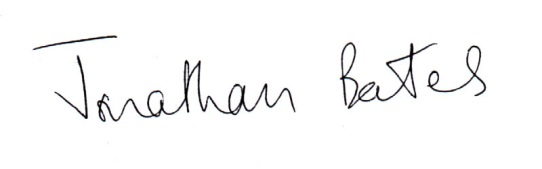 Jonathan Bates